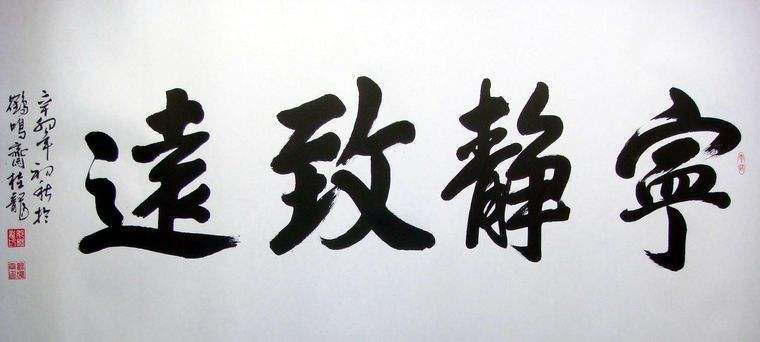 寧靜致遠
辛卯年初秋於
鶴鳴齋桂龍